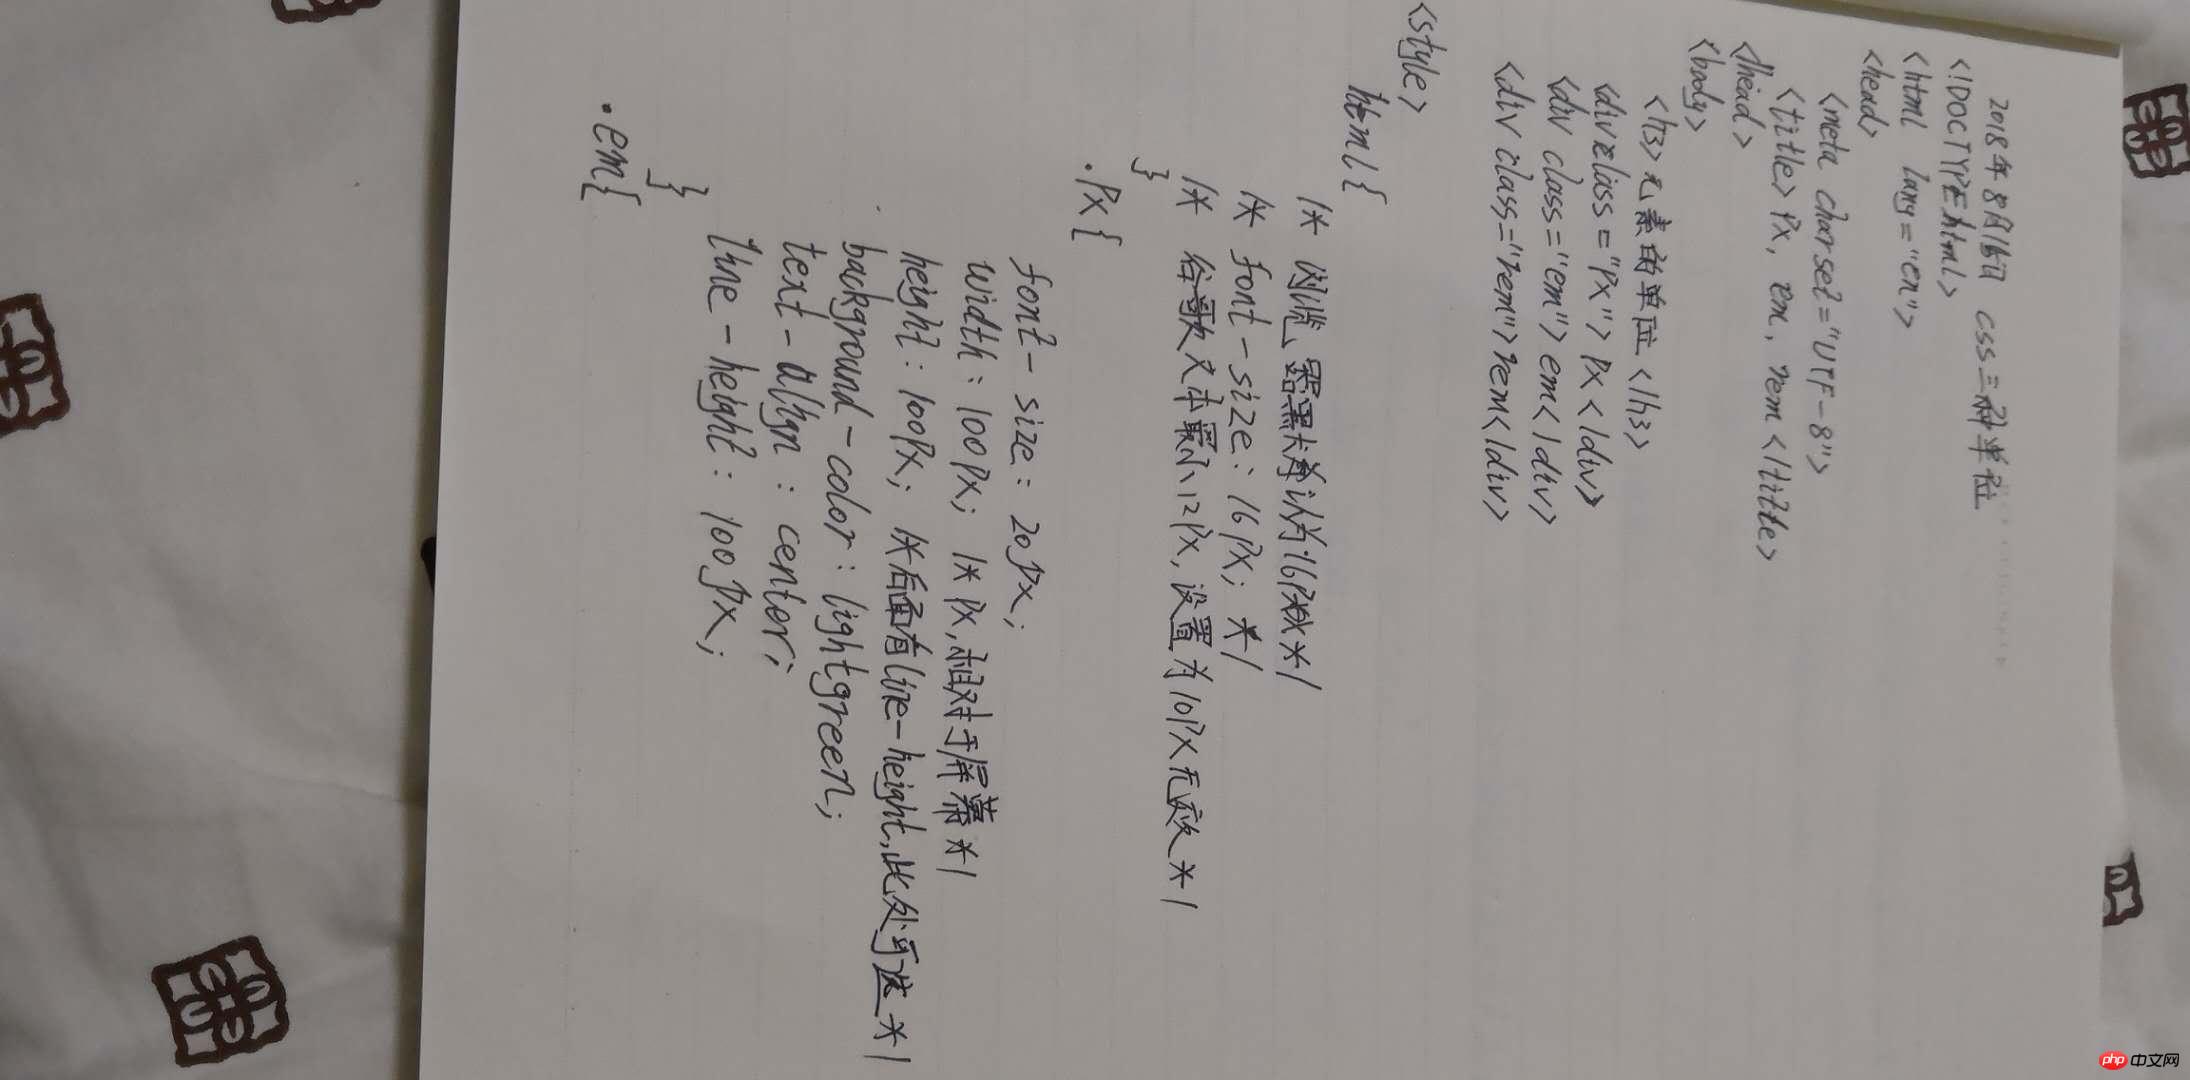 2018年8月16日 css三种单位
<!DOCTYPE html>
<html lang="en">
<head>
<meta charset="UTF-8">
<title>px, em, rem</title>
</head>
<body>
<h3>元素的单位</h3>
<div class="px">px</div>
<div class="em">em</div>
<div class="rem">rem</div>
<style>
html{
/* 浏览器默认为16px */
/* font-size: 16px; */
/* 谷歌文本最小12px, 设置为10px无效 */
}
.px{
font-size: 20px;
width: 100px; /* px, 相对于屏幕 */
height: 100px; /* 后面有line-height, 此处可选 */
background-color: lightgreen;
text-align: center;
line-height: 100px;
}
.em{
php 中文网